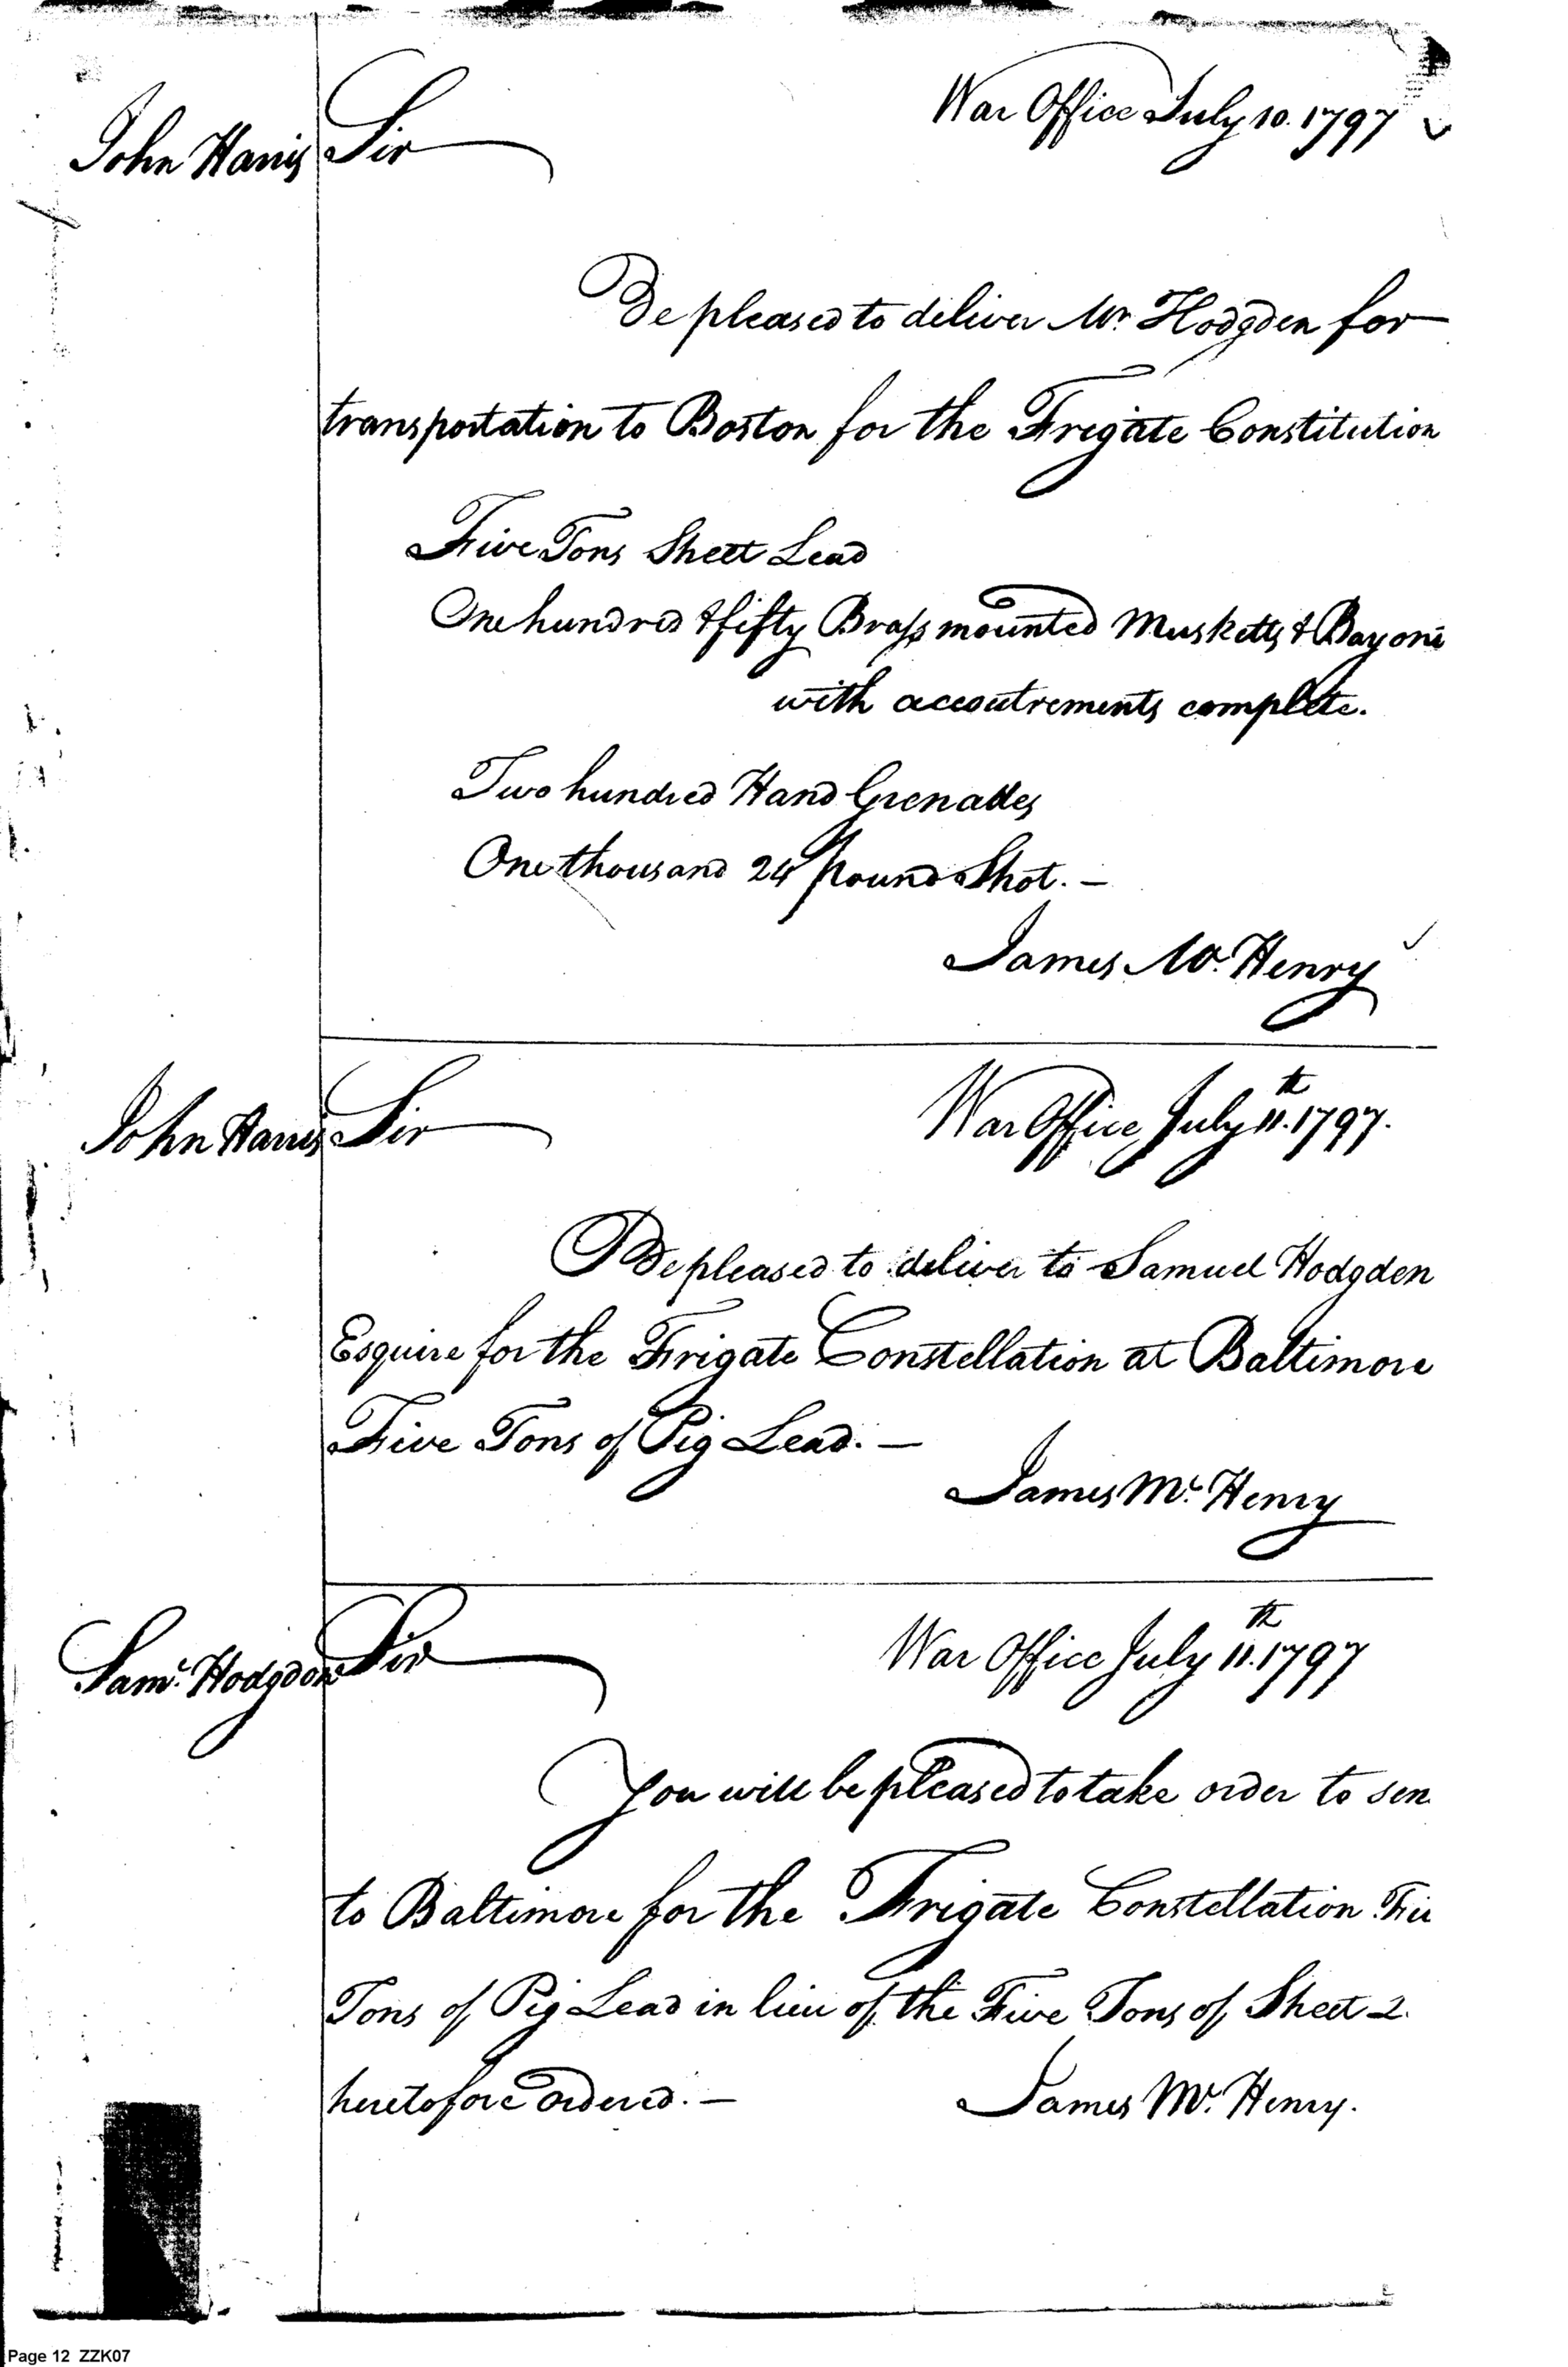 War Office July 10. 1797
John Harris Sir
Be pleased to deliver Mr. Hodgden for
transportation to Boston for the Frigate Constitution
Five Tons Sheet Lead
One hundred & fifty Brass mounted Musketts & Bayone
with accoutrements complete.
Two hundred Hand Grenades
One thousand 24 pound Shot. —
James Mc. Henry
War Office July 11.th 1797.
John Harris Sir
Be pleased to deliver to Samuel Hodgden
Esquire for the Frigate Constellation at Baltimore
Five Tons of Pig Lead. —
James Mc. Henry
War Office July 11.th 1797
Saml. Hodgdon Sir
You will be pleased to take order to sen
to Baltimore for the Frigate Constellation Five
Tons of Pig Lead in lieu of the Five Tons of Sheet L
heretofore ordered. —
James Mc. Henry.
Page 12 ZZK07